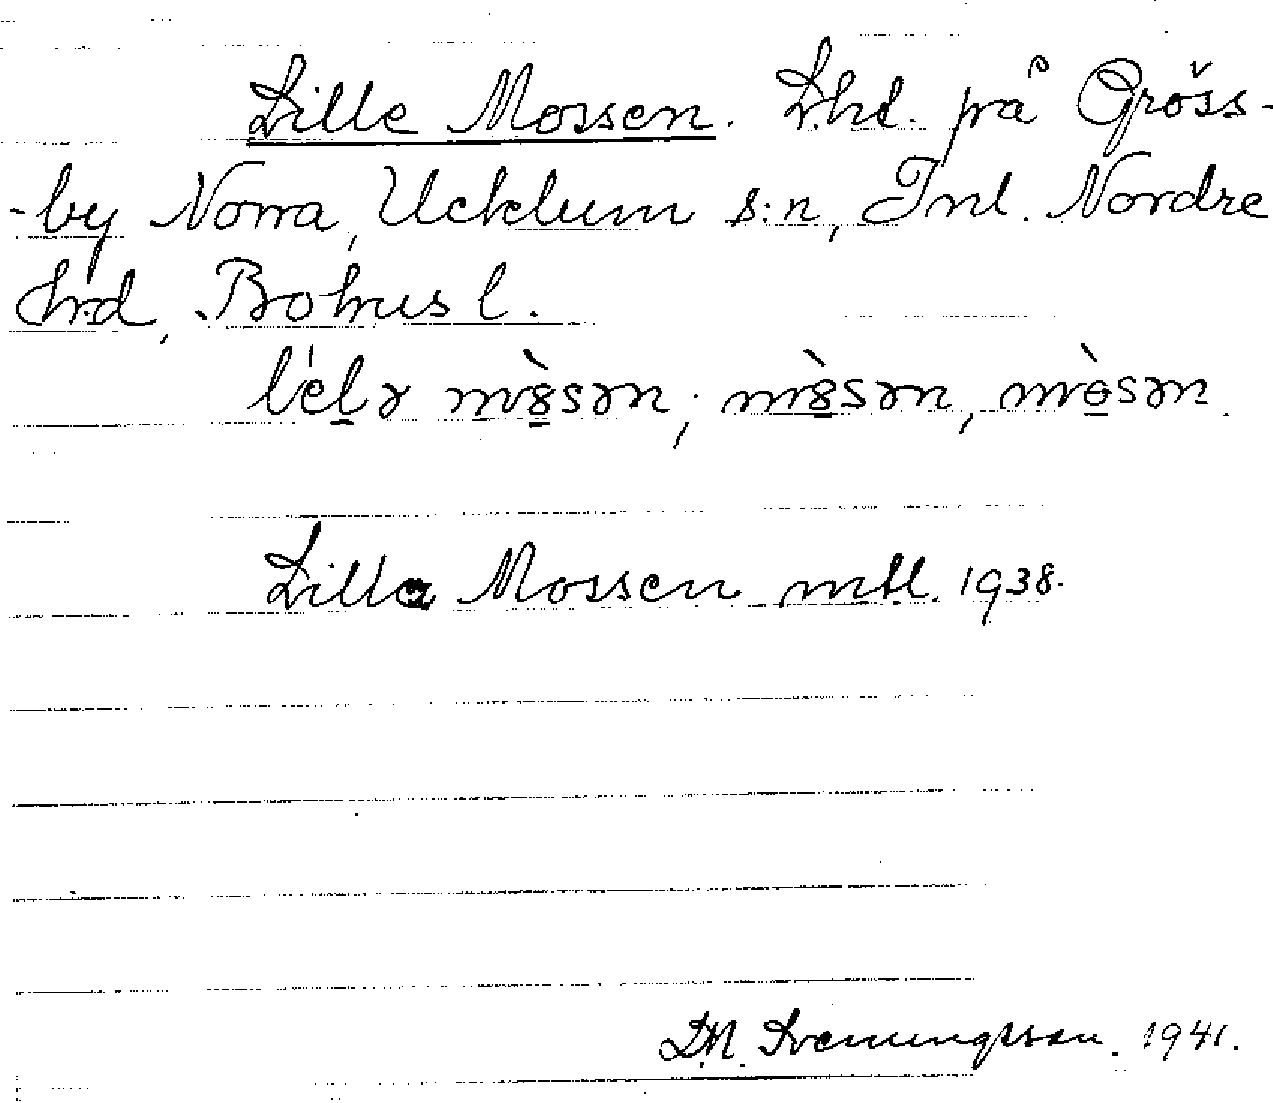 Lille Mossen. Lhl. på Gröss-
-by Norra, Ucklum s:n, Inl. Nordre
hrd, Bohus l.
lélə mò̱8sən; mò̱8sən, mɵ̀sən.
Lilla Mossen mtl. 1938.
Svenungsson. 1941.